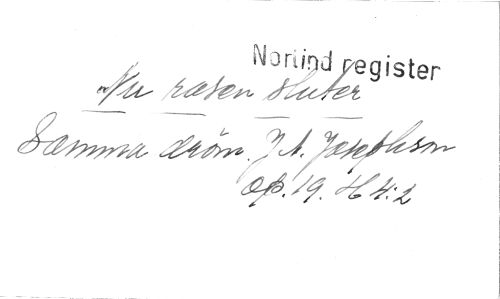 Norlind register
Nu rosen sluter
Samma dröm. J. A. Josephson
op. 19. H 4:2